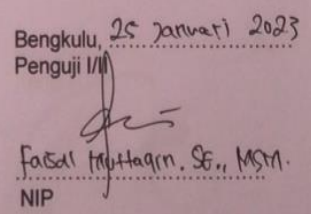 Bengkulu, 25 Januari 2023
Penguji I/II
Faisal Muttaqin. SE., MSM.
NIP